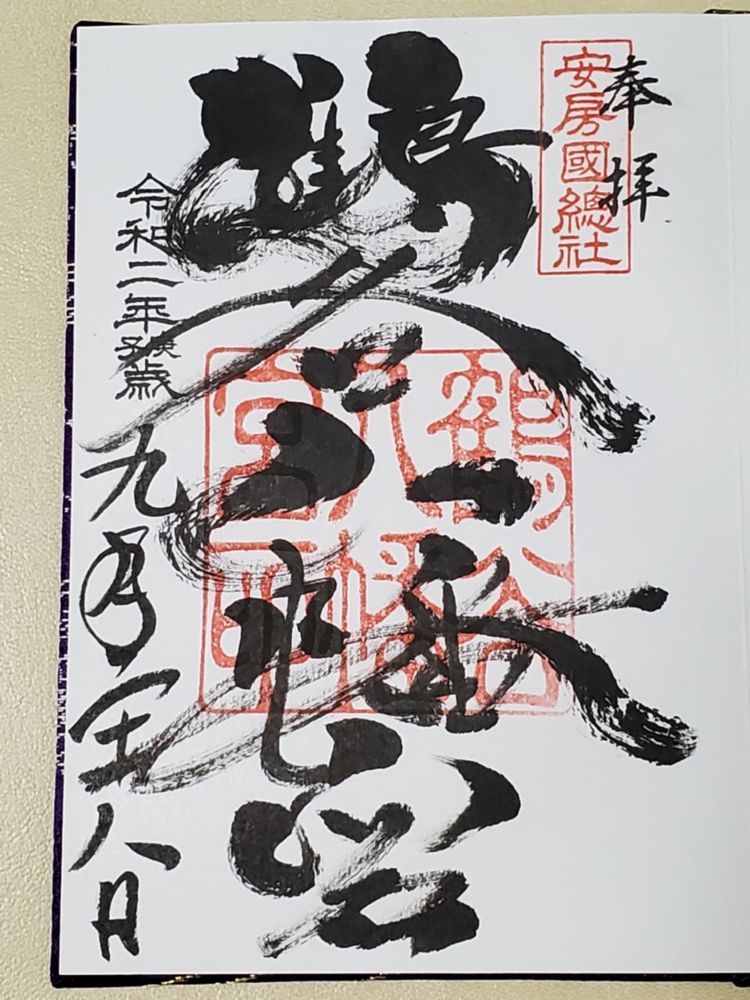 奉拝
安房國總社
鶴谷八幡宮
鶴谷八幡宮印
令和二年歳九月八日